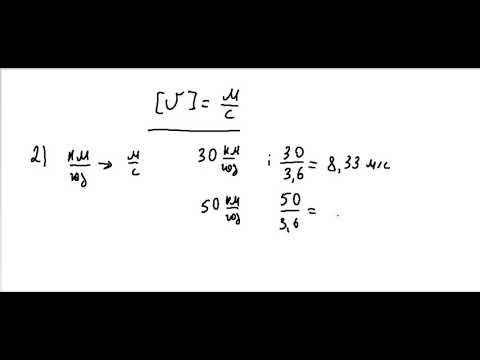 [v] = м/с
2) км/год → м/с 30 км/год ; 30/3,6 = 8,33 м/с
50 км/год 50/3,6 =